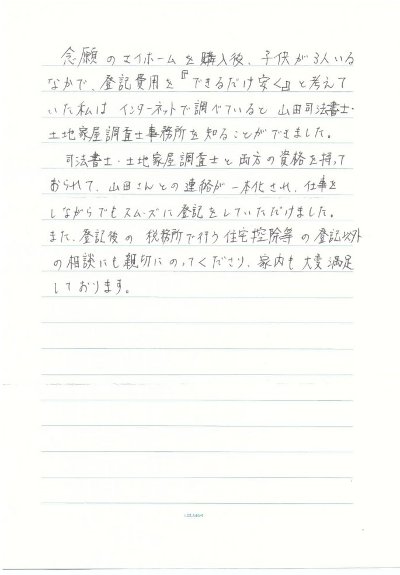 念願のマイホームを購入後、子供が3人いる
なかで、登記費用を『できるだけ安く』と考えて
いた私は インターネットで調べていると 山田司法書士・
土地家屋調査士事務所を知ることができました。
司法書士・土地家屋調査士と両方の資格を持って
おられて、山田さんとの連絡が一本化され、仕事を
しながらでもスムーズに登記をしていただけました。
また、登記後の 税務所で行う住宅控除等の登記以外
の相談にも親切にのってくださり、家内も大変満足
しております。